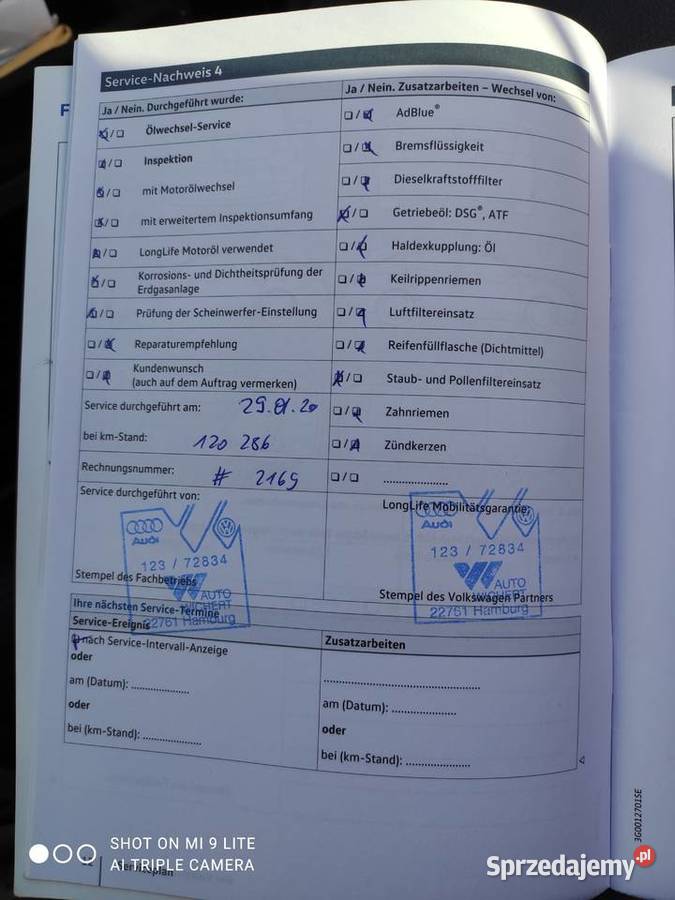 Service-Nachweis 4
Ja / Nein. Durchgeführt wurde:
Ölwechsel-Service
Inspektion
mit Motorölwechsel
mit erweitertem Inspektionsumfang
LongLife Motoröl verwendet
Korrosions- und Dichtheitsprüfung der
Erdgasanlage
Prüfung der Scheinwerfer-Einstellung
Reparaturempfehlung
Kundenwunsch
(auch auf dem Auftrag vermerken)
Service durchgeführt am: 29.01.20
bei km-Stand: 120 286
Rechnungsnummer: # 2169
Service durchgeführt von:
Audi
123 / 72834
AUTO
WICHERT
22761 Hamburg
Stempel des Fachbetriebs
Ja / Nein. Zusatzarbeiten – Wechsel von:
AdBlue®
Bremsflüssigkeit
Dieselkraftstofffilter
Getriebeöl: DSG®, ATF
Haldexkupplung: Öl
Keilrippenriemen
Luftfiltereinsatz
Reifenfüllflasche (Dichtmittel)
Staub- und Pollenfiltereinsatz
Zahnriemen
Zündkerzen
.....................
LongLife Mobilitätsgarantie:
Audi
123 / 72834
AUTO
WICHERT
22761 Hamburg
Stempel des Volkswagen Partners
Ihre nächsten Service-Termine
Service-Ereignis
nach Service-Intervall-Anzeige
oder
am (Datum): ...................
oder
bei (km-Stand): ...................
Zusatzarbeiten
.....................
am (Datum): ...................
oder
bei (km-Stand): ...................
3G0012701SE
12
Serviceplan
SHOT ON MI 9 LITE
AI TRIPLE CAMERA
Sprzedajemy.pl